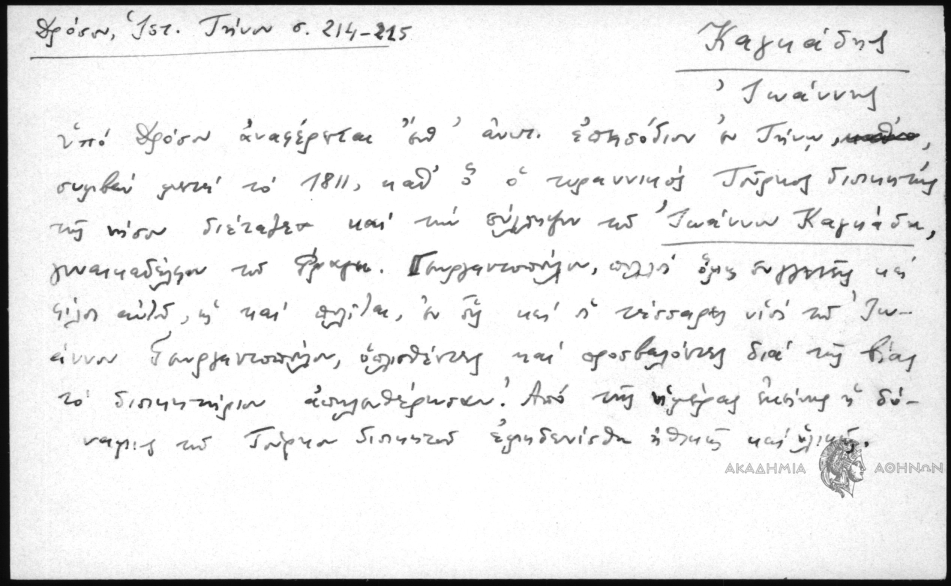 Δρόσου, Ἱστ. Τήνου σ. 214-215
Καγκάδης
Ἰωάννης
ὑπό Δρόσου ἀναφέρεται ἐπεισόδιον ἐν Τήνῳ,
συμβάν μετά τό 1811, καθ' ὅ ὁ τυραννικός Τοῦρκος διοικητής
τῆς νήσου διέταξεν καί τήν σύλληψιν τοῦ Ἰωάννου Καγκάδη,
γυναικαδέλφου τοῦ Γεωργαντοπούλου, πολλοί ὅμως συγγενεῖς καί
φίλοι αὐτοῦ, ὡς καί πολῖται, ἐν οἷς καί οἱ τέσσαρες υἱοί τοῦ Ἰω-
άννου Γεωργαντοπούλου, ὁπλισθέντες καί προσβαλόντες διά τῆς βίας
τό διοικητήριον ἀπηλευθέρωσαν. Ἀπό τῆς ἡμέρας ἐκείνης ἡ δύ-
ναμις τοῦ Τούρκου διοικητοῦ ἐμηδενίσθη ἠθικῶς καί ὑλικῶς.
ΑΚΑΔΗΜΙΑ ΑΘΗΝΩΝ